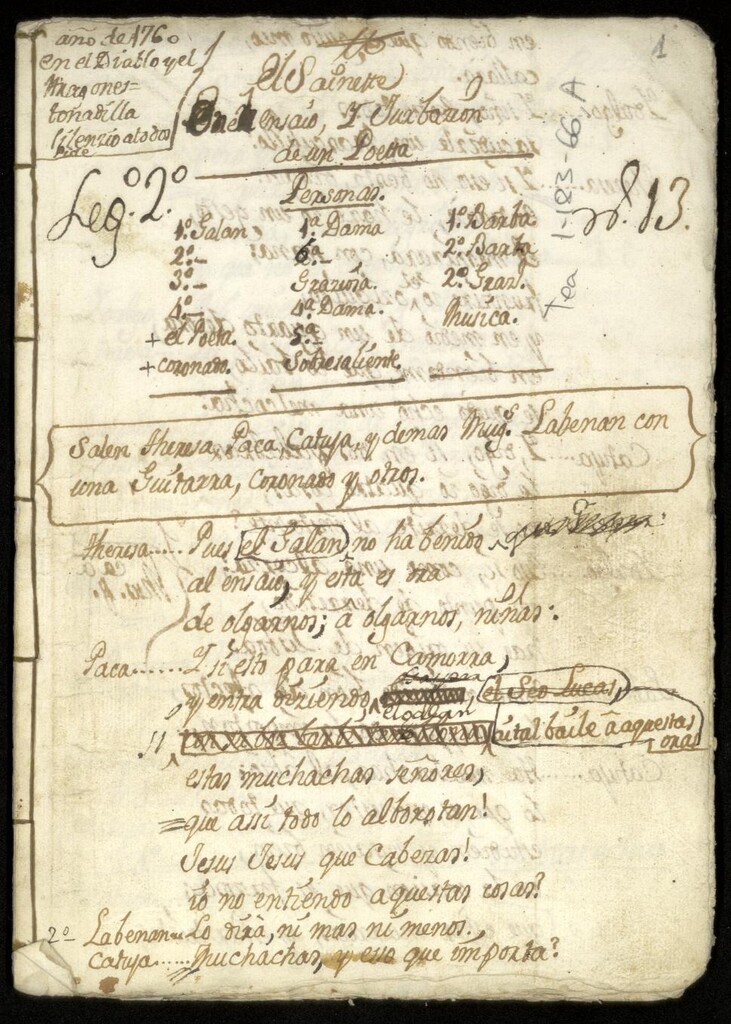 año de 1760
en el Diablo y el
Aragones=
tonadilla
silenzio atodos
Pide
1
El Sainette
En el ensaio, Y Turbazion
de un Poetta
Leg.º 2.º
nº. 13.
Tea 1-183-66 A
Personas.
1º. Galan 1ª. Dama 1º. Barba
2º.- 6ª.- 2º. Barba
3º.- Graziosa 2º. Graz.
4º.- 4ª. Dama. Musica.
+ el Poeta. 5ª.-
+ coronado. Sobresaliente.
Salen theresa, Paca, Catuja, y demas Mug.s Labenan con
una Guitarra, coronado y otros.
theresa..... Pues el Galan no ha benido
al ensaio, y esta es
de olgarnos; a olgarnos, niñas:
Paca....... Y si esto para en Camorra,
y entra diziendo el Séo Lucas,
atal baile a aquestas
oras
estas muchachas señores,
que assi todo lo alborotan!
Jesus Jesus que Cabezas!
io no entiendo aquestas cosas?
2º Labenan.. Lo dirà, ni mas ni menos.
Catuja..... Muchachas, y esso que importa?